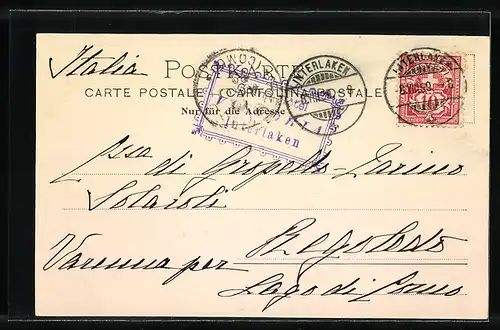 Italia
POSTKARTE
CARTE POSTALE CARTOLINA POSTALE
Nur für die Adresse
Interlaken
INTERLAKEN
INTERLAKEN
10
di Gropello-Tarino
Solaroli
Regoledo
Varenna per
Lago di Como